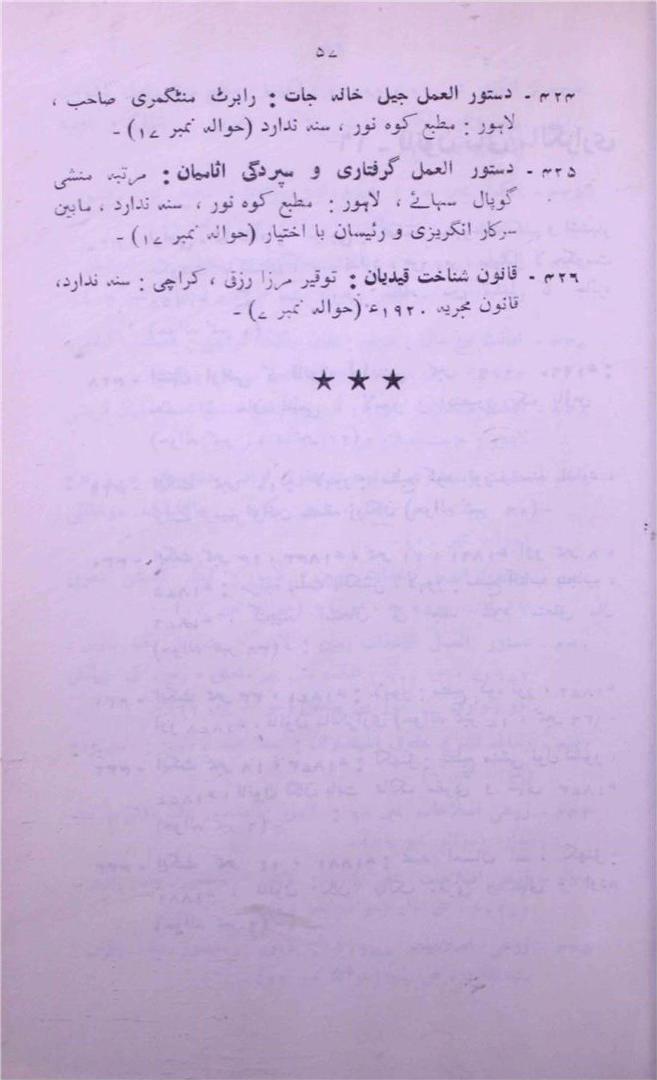 ۵۷
۴۲۴ - دستور العمل جیل خانہ جات : رابرٹ منٹگمری صاحب ،
لاہور : مطبع کوہ نور ، سنہ ندارد (حوالہ نمبر ۱۷) -
۴۲۵ - دستور العمل گرفتاری و سپردگی اثامیان : مرتبہ منشی
گوپال سہائے ، لاہور : مطبع کوہ نور ، سنہ ندارد ، مابین
سرکار انگریزی و رئیسان با اختیار (حوالہ نمبر ۱۷) -
۴۲۶ - قانون شناخت قیدیان : توقیر مرزا رزق ، کراچی : سنہ ندارد،
قانون مجریہ ۱۹۲۰ء (حوالہ نمبر ۷) -
★ ★ ★